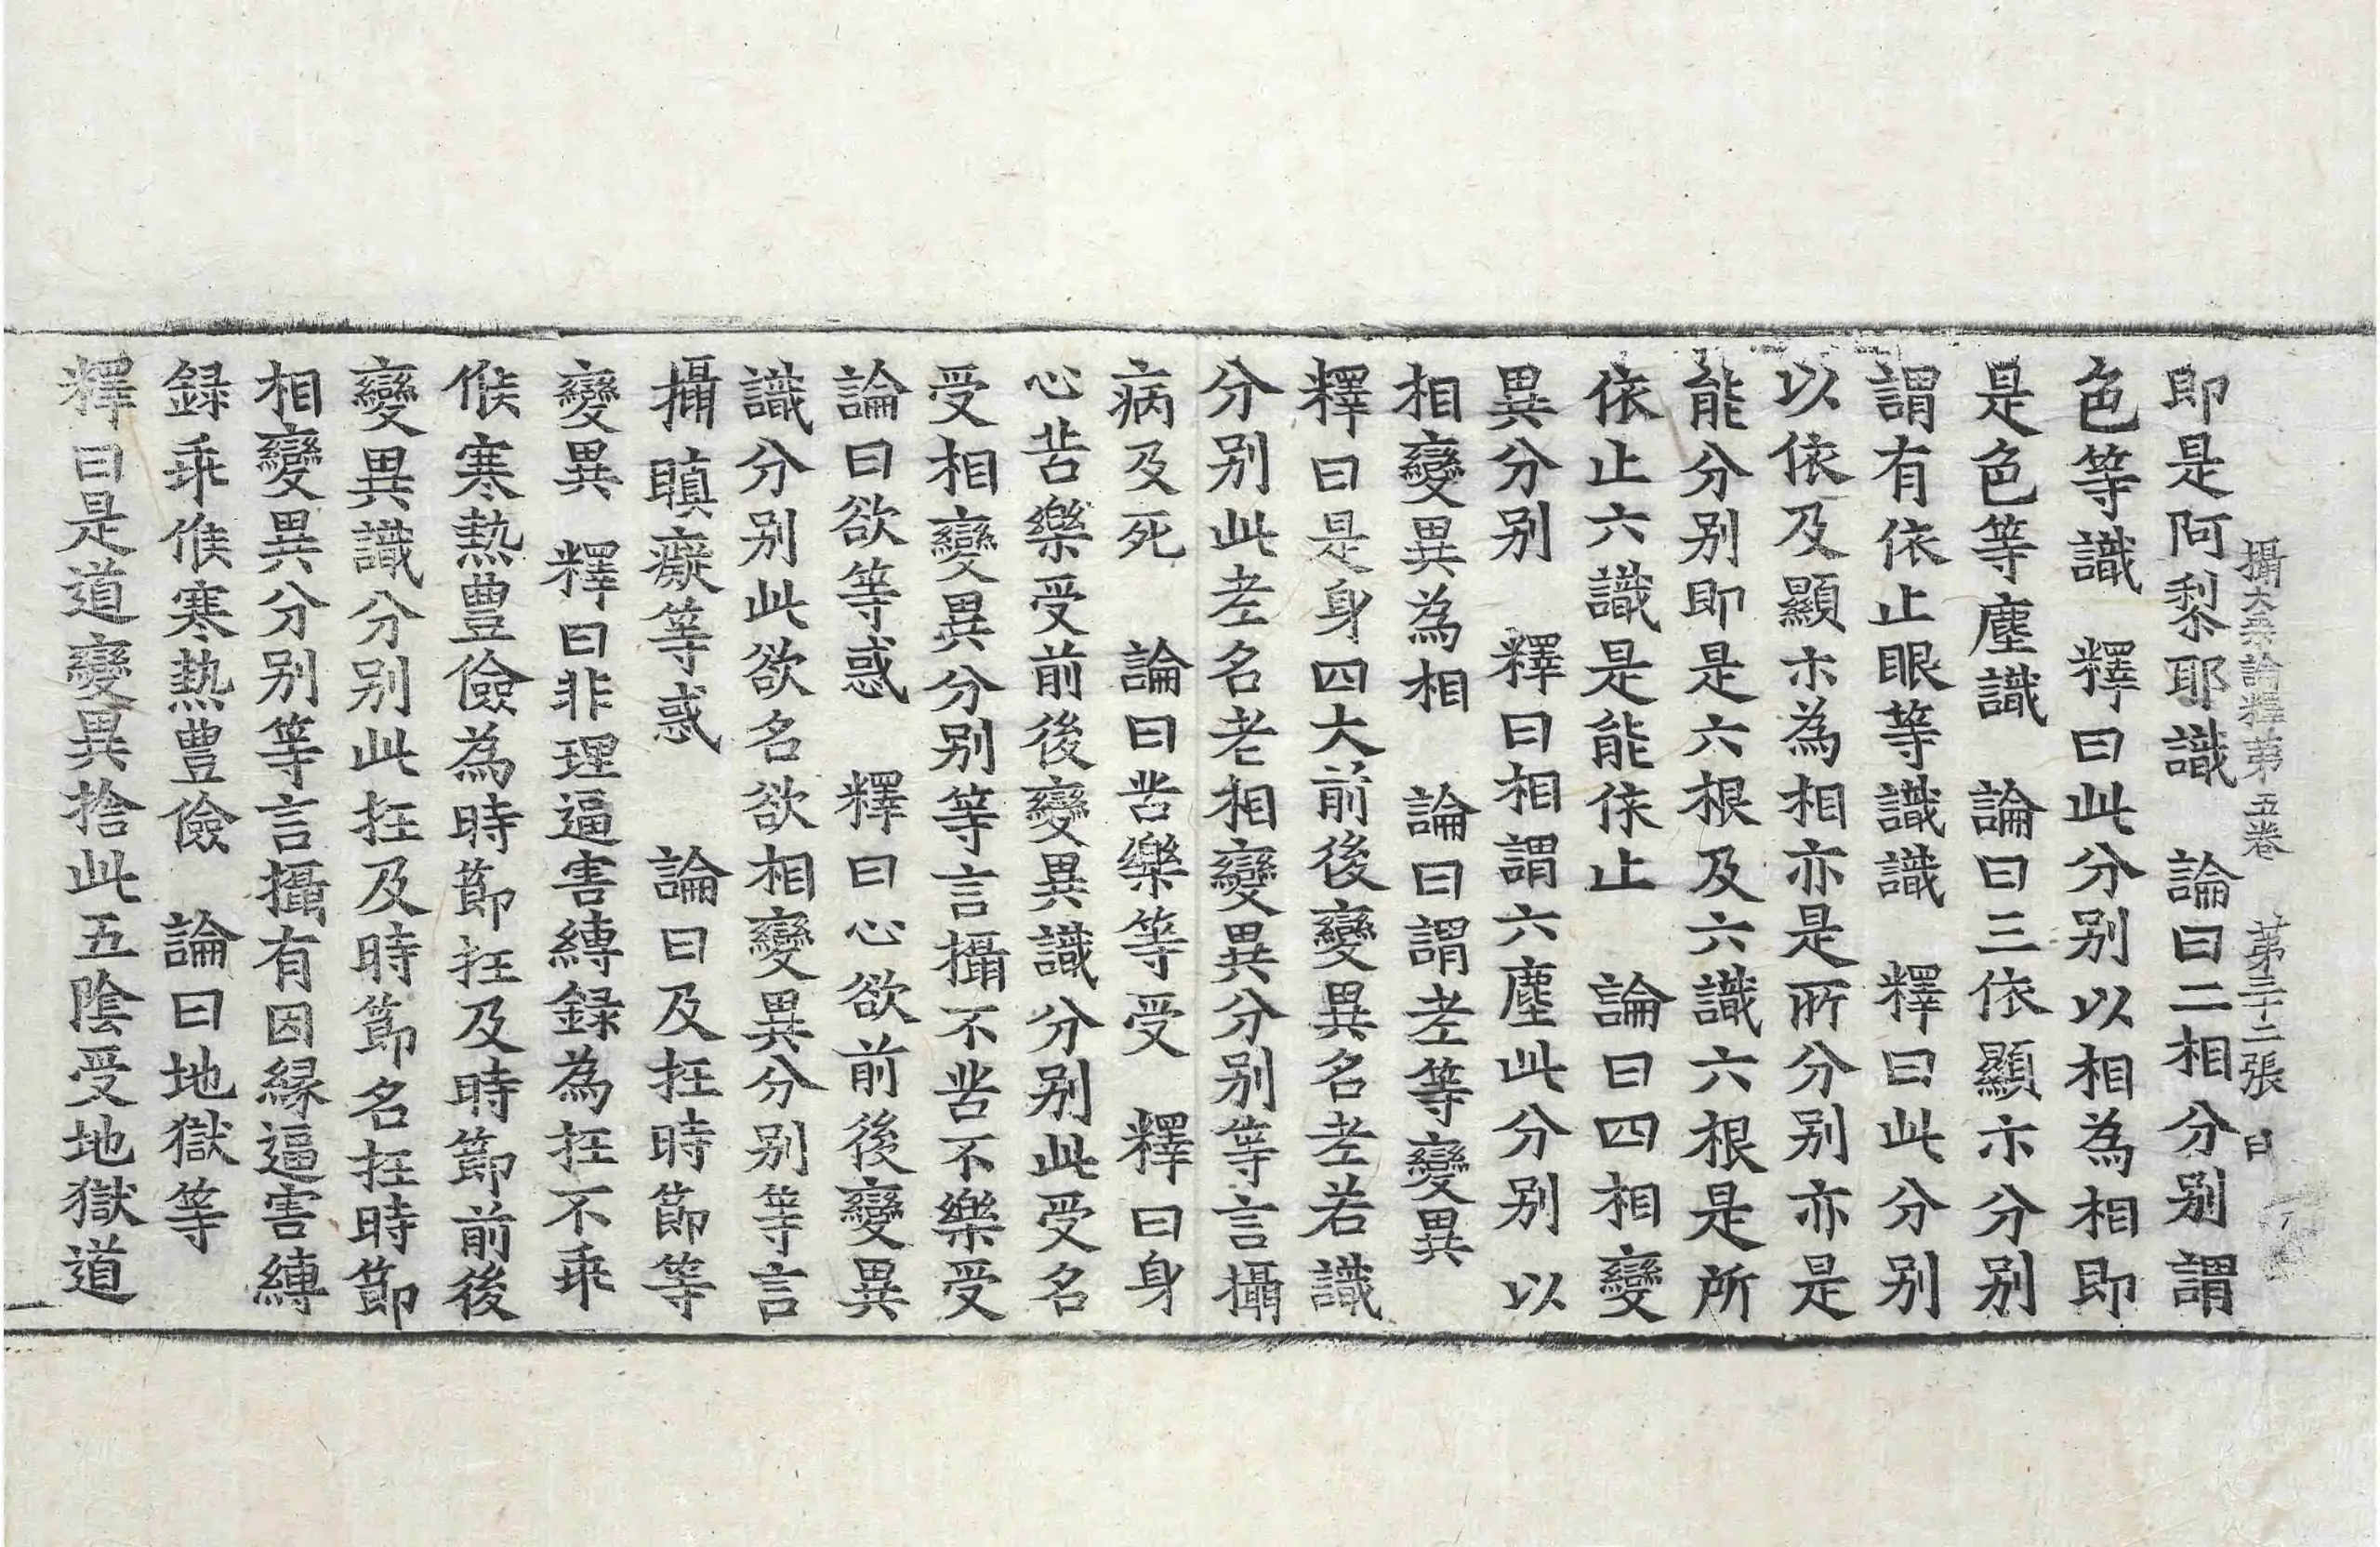 攝大乗論釋第五卷　第三十二張　曰
即是阿梨耶識　論曰二相分别謂
色等識　釋曰此分别以相為相即
是色等塵識　論曰三依顯示分别
謂有依止眼等識識　釋曰此分别
以依及顯示為相亦是所分别亦是
能分别即是六根及六識六根是所
依止六識是能依止　論曰四相變
異分别　釋曰相謂六塵此分别以
相變異為相　論曰謂老等變異
釋曰是身四大前後變異名老若識
分别此老名老相變異分别等言攝
病及死　論曰苦樂等受　釋曰身
心苦樂受前後變異識分别此受名
受相變異分别等言攝不苦不樂受
論曰欲等惑　釋曰心欲前後變異
識分别此欲名欲相變異分别等言
攝瞋癡等惑　論曰及抂時節等
變異　釋曰非理逼害縳録為抂不乖
候寒熱豊儉為時節抂及時節前後
變異識分别此抂及時節名抂時節
相變異分别等言攝有因縁逼害縳
録乖候寒熱豊儉　論曰地獄等
釋曰是道變異捨此五陰受地獄道